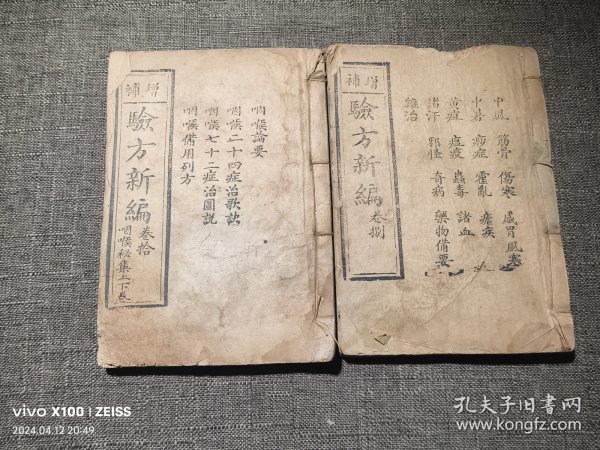 增補
驗方新編
卷拾
咽喉秘集上下卷
咽喉論要
咽喉二十四症治歌訣
咽喉七十二症治圖説
咽喉備用列方
增補
驗方新編
卷捌
中風 筋骨 傷寒 感冒風寒
中暑 痧症 霍亂 瘧疾
黃疸 瘟疫 蟲毒 諸血
諸汗 邪怪 奇病 藥物備要
雜治
vivo X100 | ZEISS
2024.04.12 20:49
孔夫子旧书网
www.kongfz.com